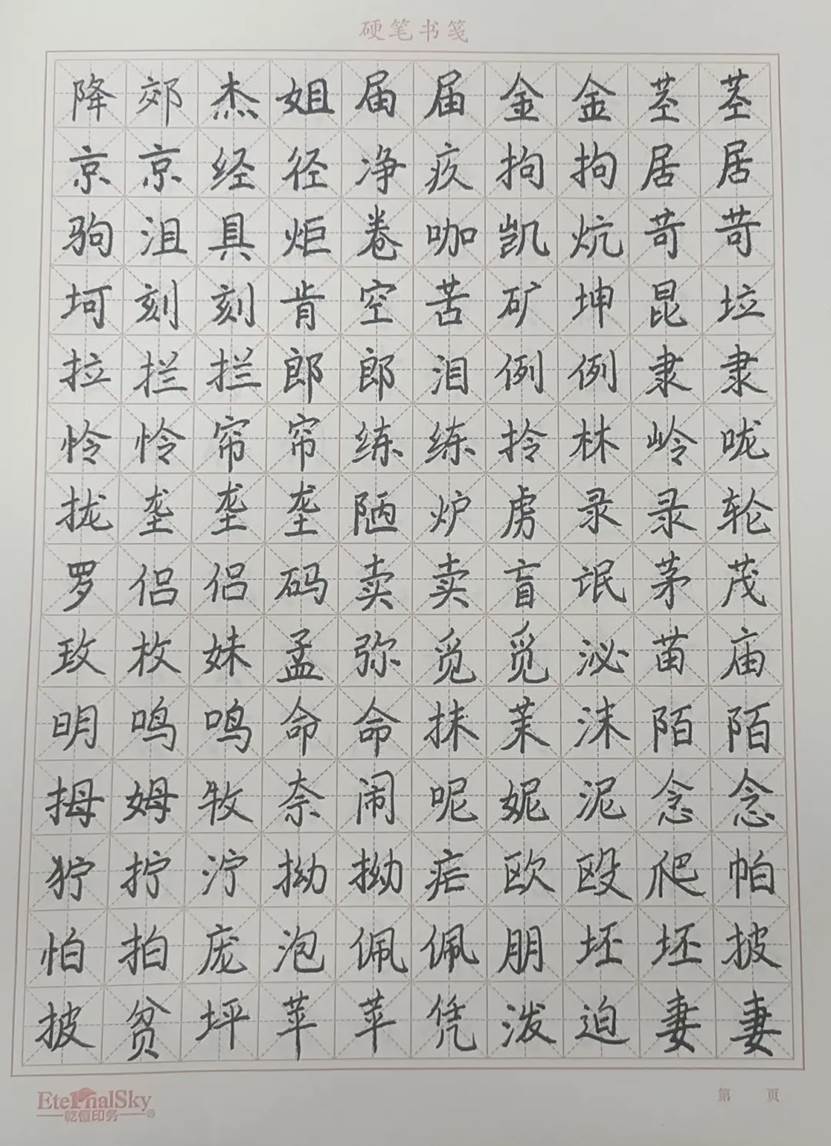 硬笔书笺
降郊杰姐届届金金茎茎
京京经径净疚拘拘居居
驹沮具炬卷咖凯炕苛苛
坷刻刻肯空苦矿坤昆垃
拉拦拦郎郎泪例例隶隶
怜怜帘帘练练拎林岭咙
拢垄垄垄陋炉虏录录轮
罗侣侣码卖卖盲氓茅茂
玫枚妹孟弥觅觅泌苗庙
明鸣鸣命命抹茉沫陌陌
拇姆牧奈闹呢妮泥念念
狞拧泞拗拗疟欧殴爬帕
怕拍庞泡佩佩朋坯坯披
披贫坪苹苹凭泼迫妻妻
EternalSky
乾恒印务
第 页